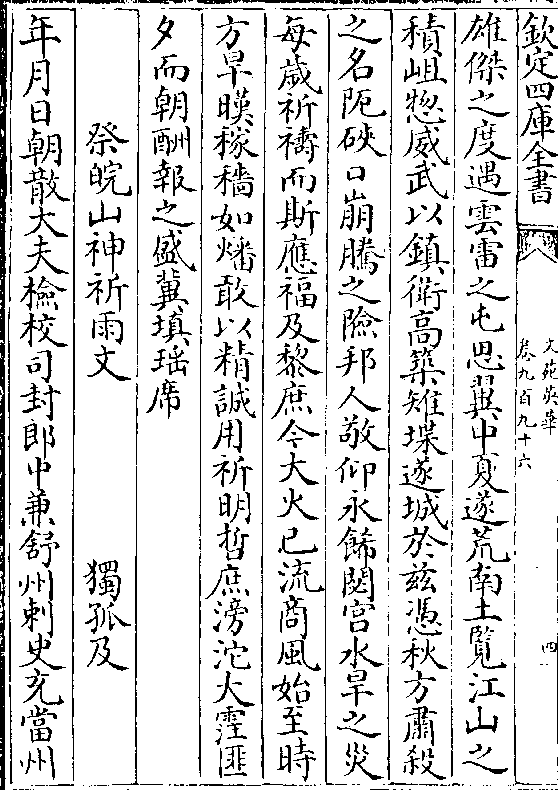 欽定四庫全書
文苑英華
卷九百九十六
四
雄傑之度遇雲雷之屯思翼中夏遂荒南土覽江山之
積岨惣威武以鎮衝高築雉堞遂城於兹憑秋方肅殺
之名阨硤口崩騰之險邦人敬仰永餙閟宫水旱之災
每歲祈禱而斯應福及黎庶今大火已流商風始至時
方旱暵稼穡如燔敢以精誠用祈明晢庶滂沱大霔匪
夕而朝酬報之盛冀填瑶席
祭皖山神祈雨文 獨孤及
年月日朝散大夫檢校司封郎中兼舒州刺史充當州